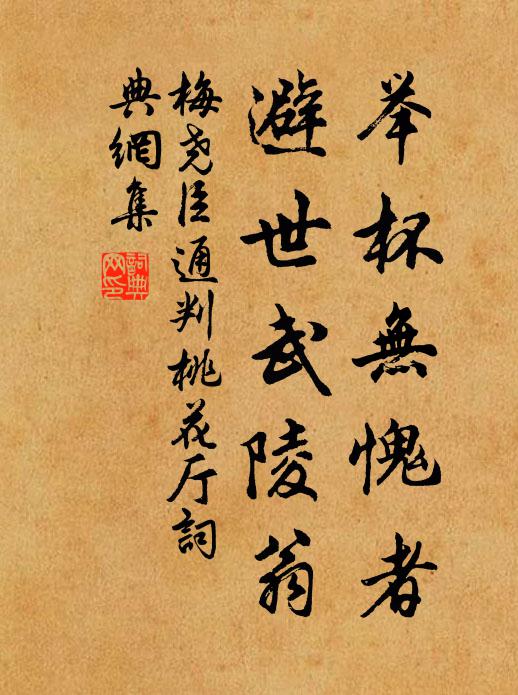 举杯無愧者
避世武陵翁
梅尧臣通判桃花厅詞
典網集
詞典网印